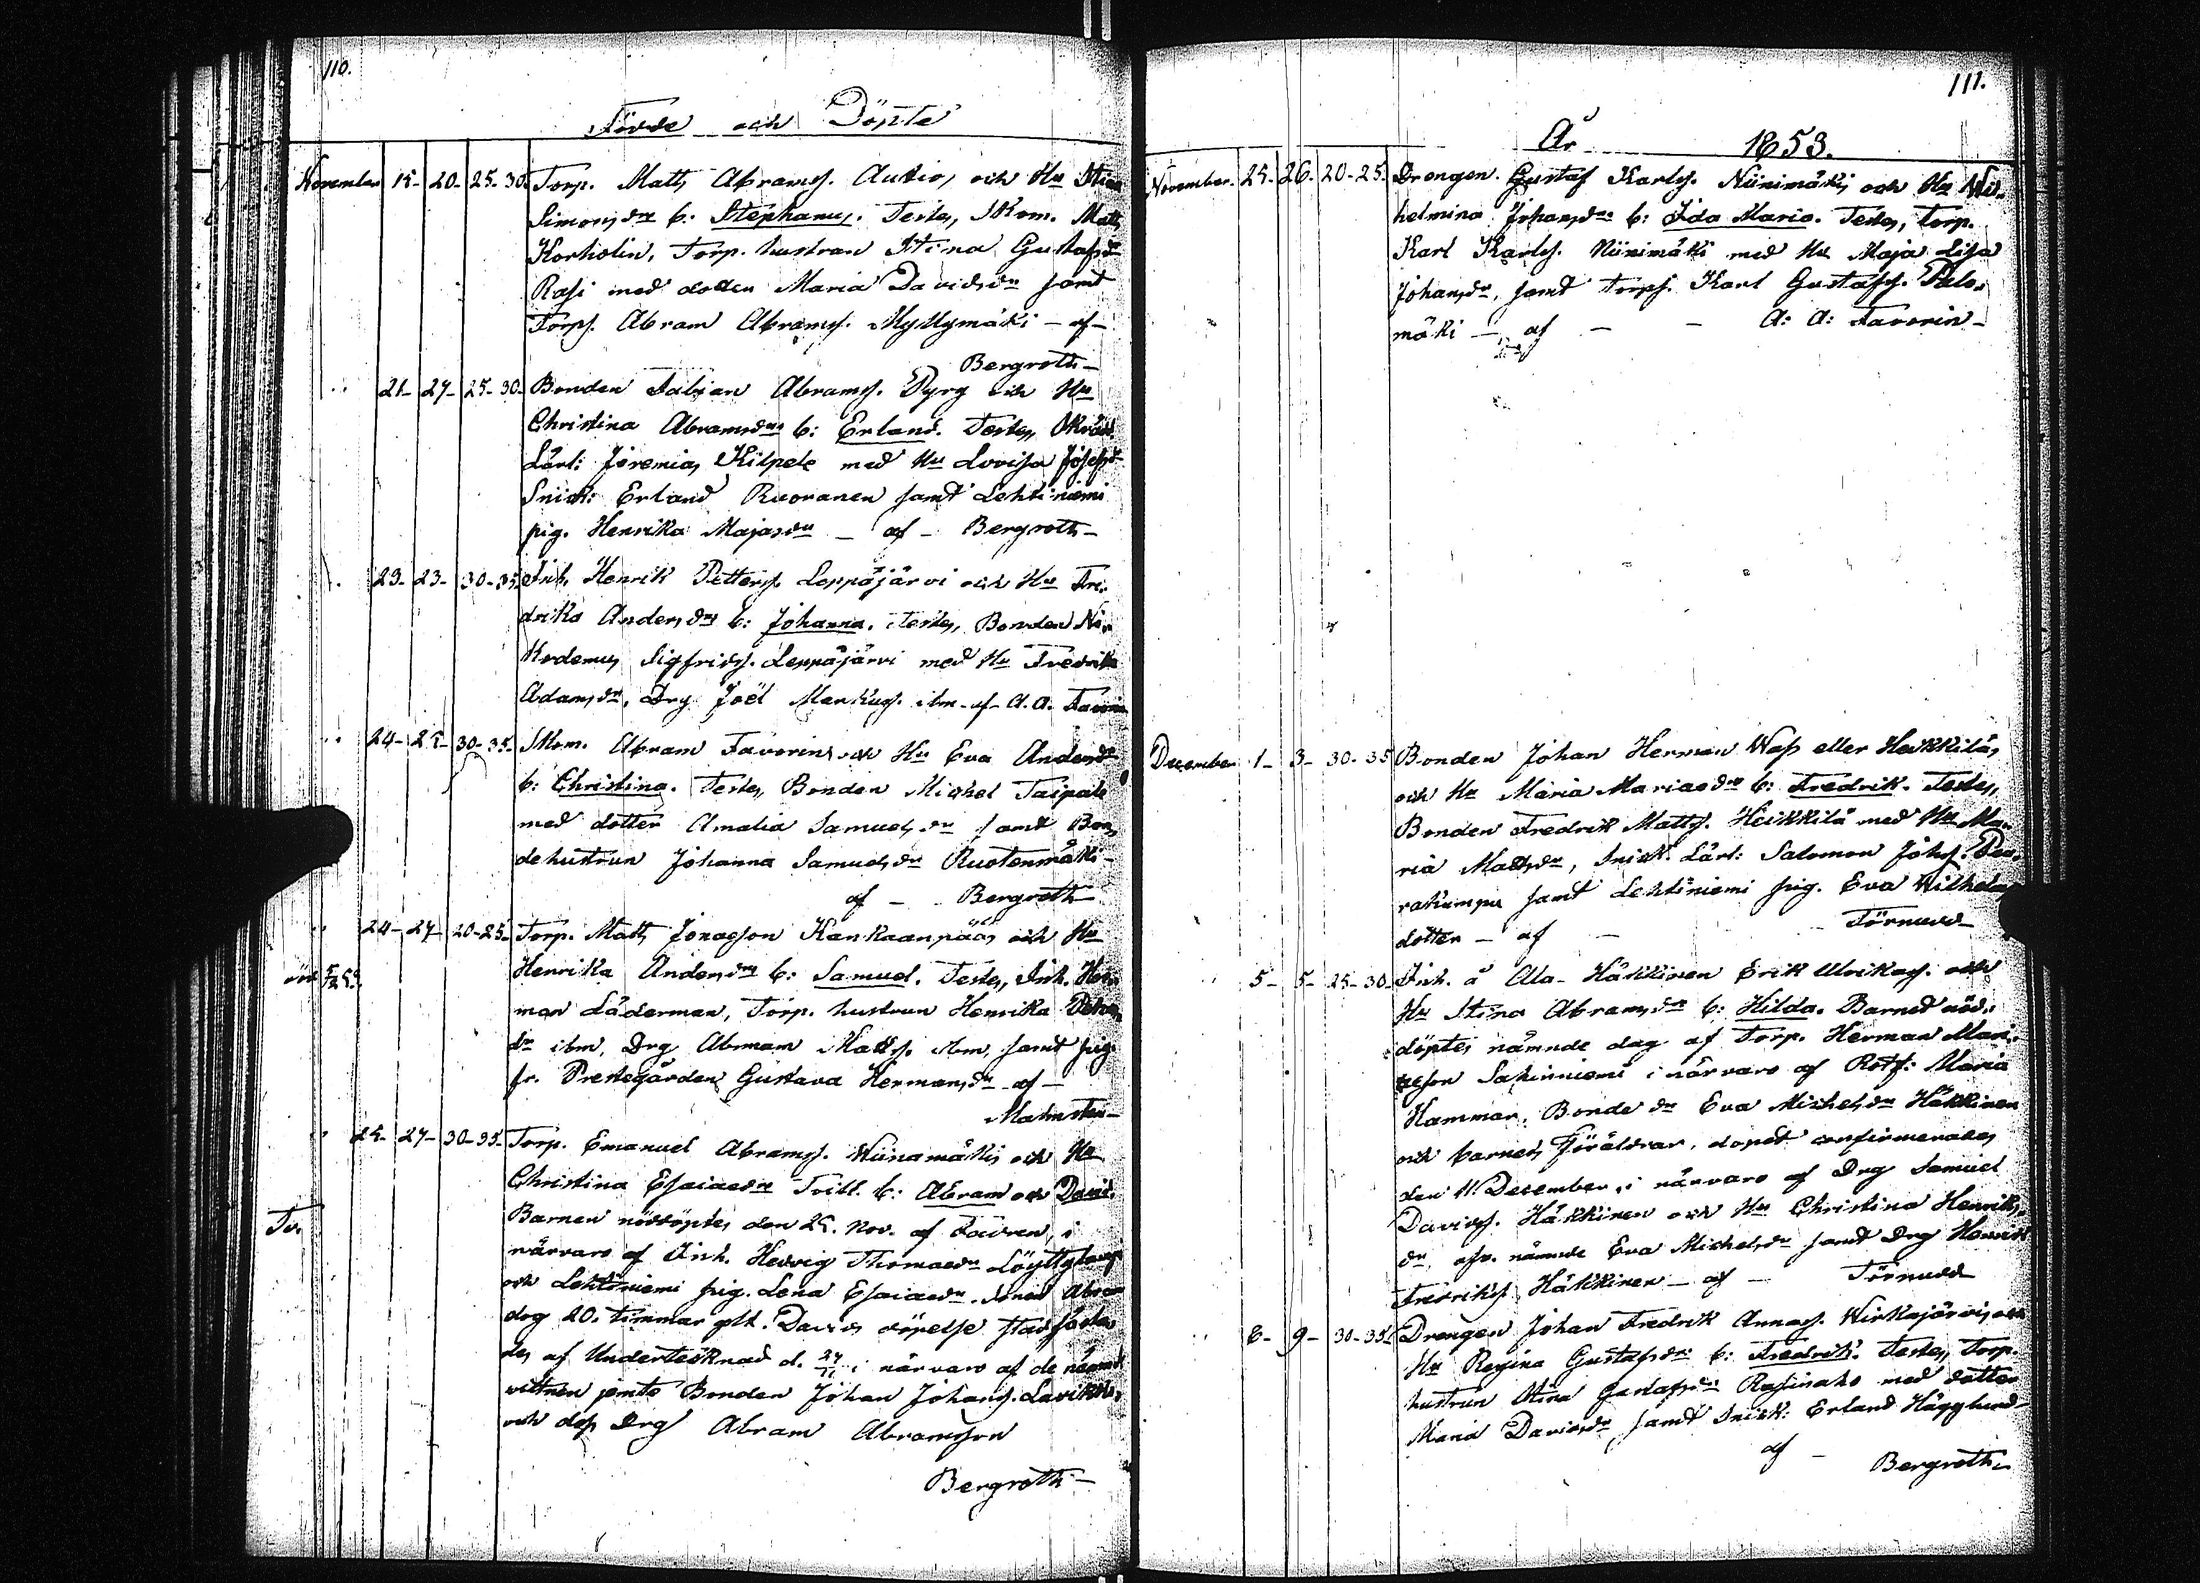 110.
Födde och Döpte
November 15- 20- 25-30. Torp. Matts Abramss. Autio, och Hu Stina
Simonsdr b: Stephanus. Testes, Skom. Matts
Korholin, Torp. hustrun Stina Gustafsdr
Rasi med dotter Maria Davidsdr samt
Torps. Abram Abramss. Myllymäki - af -
Bergroth -
21- 27- 25-30- Bonden Fabian Abramss. Pyrg och Hu
Christina Abramsdr b: Erland. Testes, Skrädd.
Lärl: Jeremias Kilpele med Hu Lovisa Josefsdr
Snick: Erland Ruoranen samt Lehtiniemi
pig. Henrika Majasdr - af - Bergroth -
23- 23- 30-35. Inh. Henrik Petterss. Leppäjärvi och Hu Fre-
drika Andersdr b: Johanna. Testes, Bonden Ni-
kodemus Sigfridss. Leppäjärvi med Hu Fredrika
Adamsdr, Drg Joël Markuss. ibm - af A. A. Favorin
24- 25- 30-35. Skom. Abram Favorin och Hu Eva Andersdr
b: Christina. Testes, Bonden Michel Taipale
med dotter Amalia Samuelsdr samt Bon-
dehustrun Johanna Samuelsdr Ruotenmäki -
af - Bergroth
24- 27- 20-25. Torp. Matts Jonasson Kankaanpää, och Hu
Henrika Andersdr b: Samuel. Testes, Inh. Her-
man Läderman, Torp. hustrun Henrika
dr ibm, Drg Abraam Matts. ibm, samt pig.
fr. Prestegården Gustava Hermansdr - af -
Malmsten -
25- 27- 30-35. Torp. Emanuel Abramss. Niinamäki, och Hu
Christina Esaiaedr Tvill. b: Abram och David.
Tv.
Barnen nöddöptes den 25. Nov. af Fadren, i
närvaro af Inh. Hedvig Thomaedr
och Lehtiniemi pig. Lena Esaiaedr. Abram
dog 20. timmar glt. Davids döpelse stadfästa-
des af Undertecknad d. 27/11 i närvaro af de nämnde
vittnen jemte Bonden Johan Johanss. Lavikko,
och dess Drg Abram Abramsson
Bergroth -
111.
År 1853.
November. 25. 26. 20-25. Drengen Gustaf Karlss. Niinimäki, och Hu Wil-
helmina Johansdr b: Ida Maria. Testes, Torp.
Karl Karlss. Niinimäki med Hu Maja Lisa
Johansdr, samt Torps. Karl Gustafss. Palo-
mäki - af - - A: A: Favorin -
December 1- 3- 30-35 Bonden Johan Herman Wass eller Heikkilä,
och Hu Maria Mariaedr b: Fredrik. Testes,
Bonden Fredrik Mattss. Heikkilä med Hu Ma-
ria Mattsdr, Snick. Lärl: Salomon Johss.
samt Lehtiniemi pig. Eva Wilhelms
dotter - af - Törnudd
5- 5- 25-30- Inh. å Ala-Häkkinen Erik Ulrikass. och
Hu Stina Abramsdr b: Hilda. Barnet nöd-
döptes nämnde dag af Torp. Herman Mari-
aeson Sahinniemi i närvaro af Rotf: Maria
Hammar, Bonde dr Eva Michelsdr Häkkinen
och barnets Föräldrar, dopet confirmerades
den 11 December, i närvaro af Drg Samuel
Davidss. Häkkinen och Hu Christina Henriks-
dr, ofv. nämnde Eva Michelsdr samt Drg Henrik
Fredrikss. Häkkinen - af - Törnudd
6- 9- 30-35. Drengen Johan Fredrik Annass. Wirkajärvi, och
Hu Regina Gustafsdr b: Fredrik. Testes, Torp.
hustrun Stina Gustafsdr Rasinaho med dotter
Maria Davidsdr, samt Snick: Erland Hägglund
af -
Bergroth -